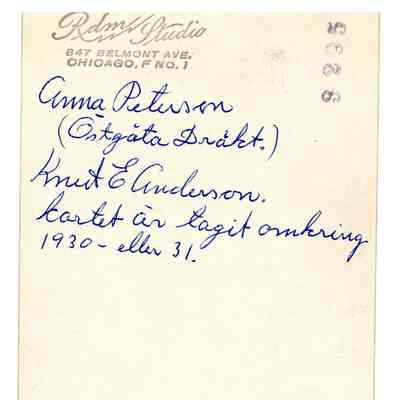 Rdm Studio
647 BELMONT AVE.
CHICAGO, F NO. 1
Anna Peterson
(Östgöta Dräkt.)
Knut E Anderson.
kortet är tagit omkring
1930 - eller 31.